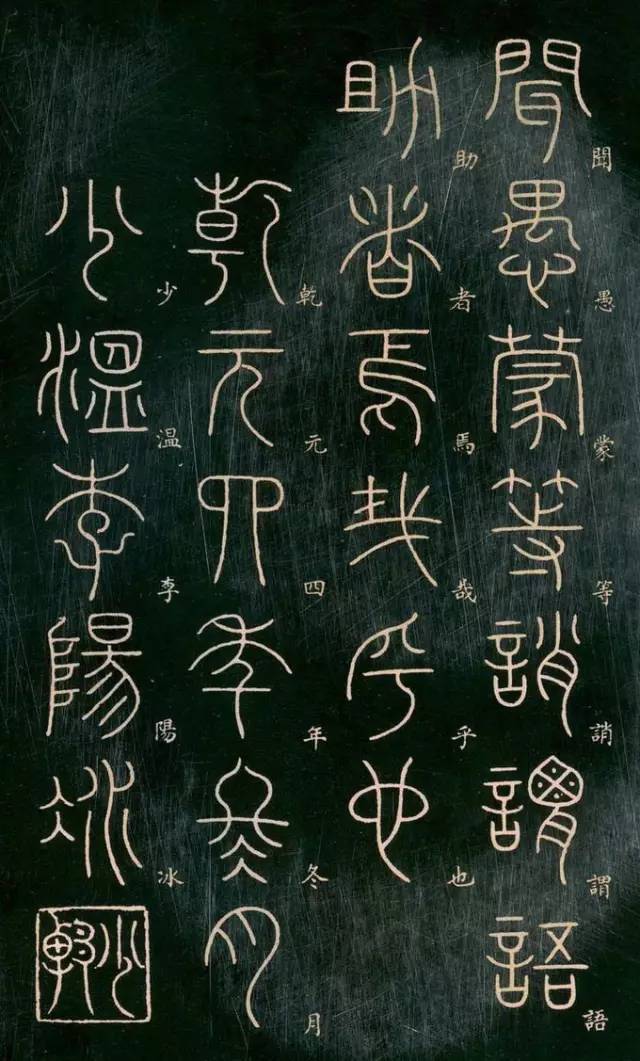 聞愚蒙等誚謂語
助者焉哉乎也
乾元四年冬月
少温李陽冰